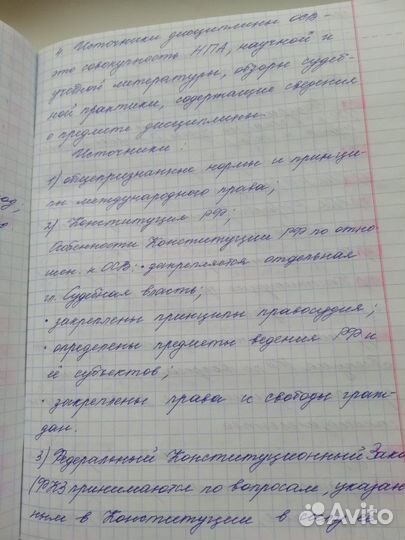 4. Источники дисциплины ОСВ -
это совокупность НПА, научной и
учебной литературы, обзоры судеб-
ной практики, содержащие сведения
о предмете дисциплины.
Источники:
1) общепризнанные нормы и принци-
пы международного права;
2) Конституция РФ;
Особенности Конституции РФ по отно-
шен. к ОСВ: · закрепляется отдельная
гл. Судебная власть;
· закреплены принципы правосудия;
· определены предметы ведения РФ и
её субъектов;
· закреплены права и свободы граж-
дан.
3) Федеральный Конституционный Зако
(ФКЗ принимаются по вопросам, указан
ным в Конституции в
Avito